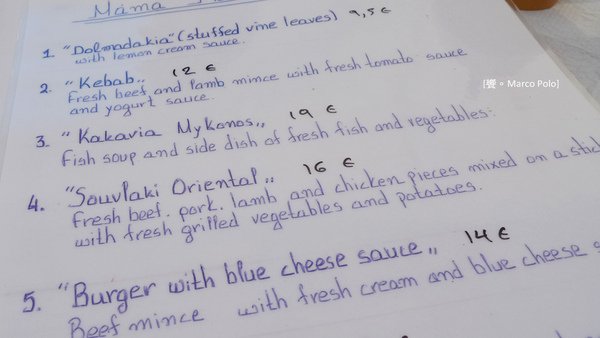 Mama
1. "Dolmadakia" (stuffed vine leaves) 9,5 €
with lemon cream sauce.
2. "Kebab,, 12 €
Fresh beef and lamb mince with fresh tomato sauce
and yogurt sauce.
3. "Kakavia Mykonos,, 19 €
Fish soup and side dish of fresh fish and vegetables.
4. "Souvlaki Oriental,, 16 €
Fresh beef. pork. lamb and chicken pieces mixed on a stick
with fresh grilled vegetables and potatoes.
5. "Burger with blue cheese sauce,, 14 €
Beef mince with fresh cream and blue cheese s
Marco Polo]